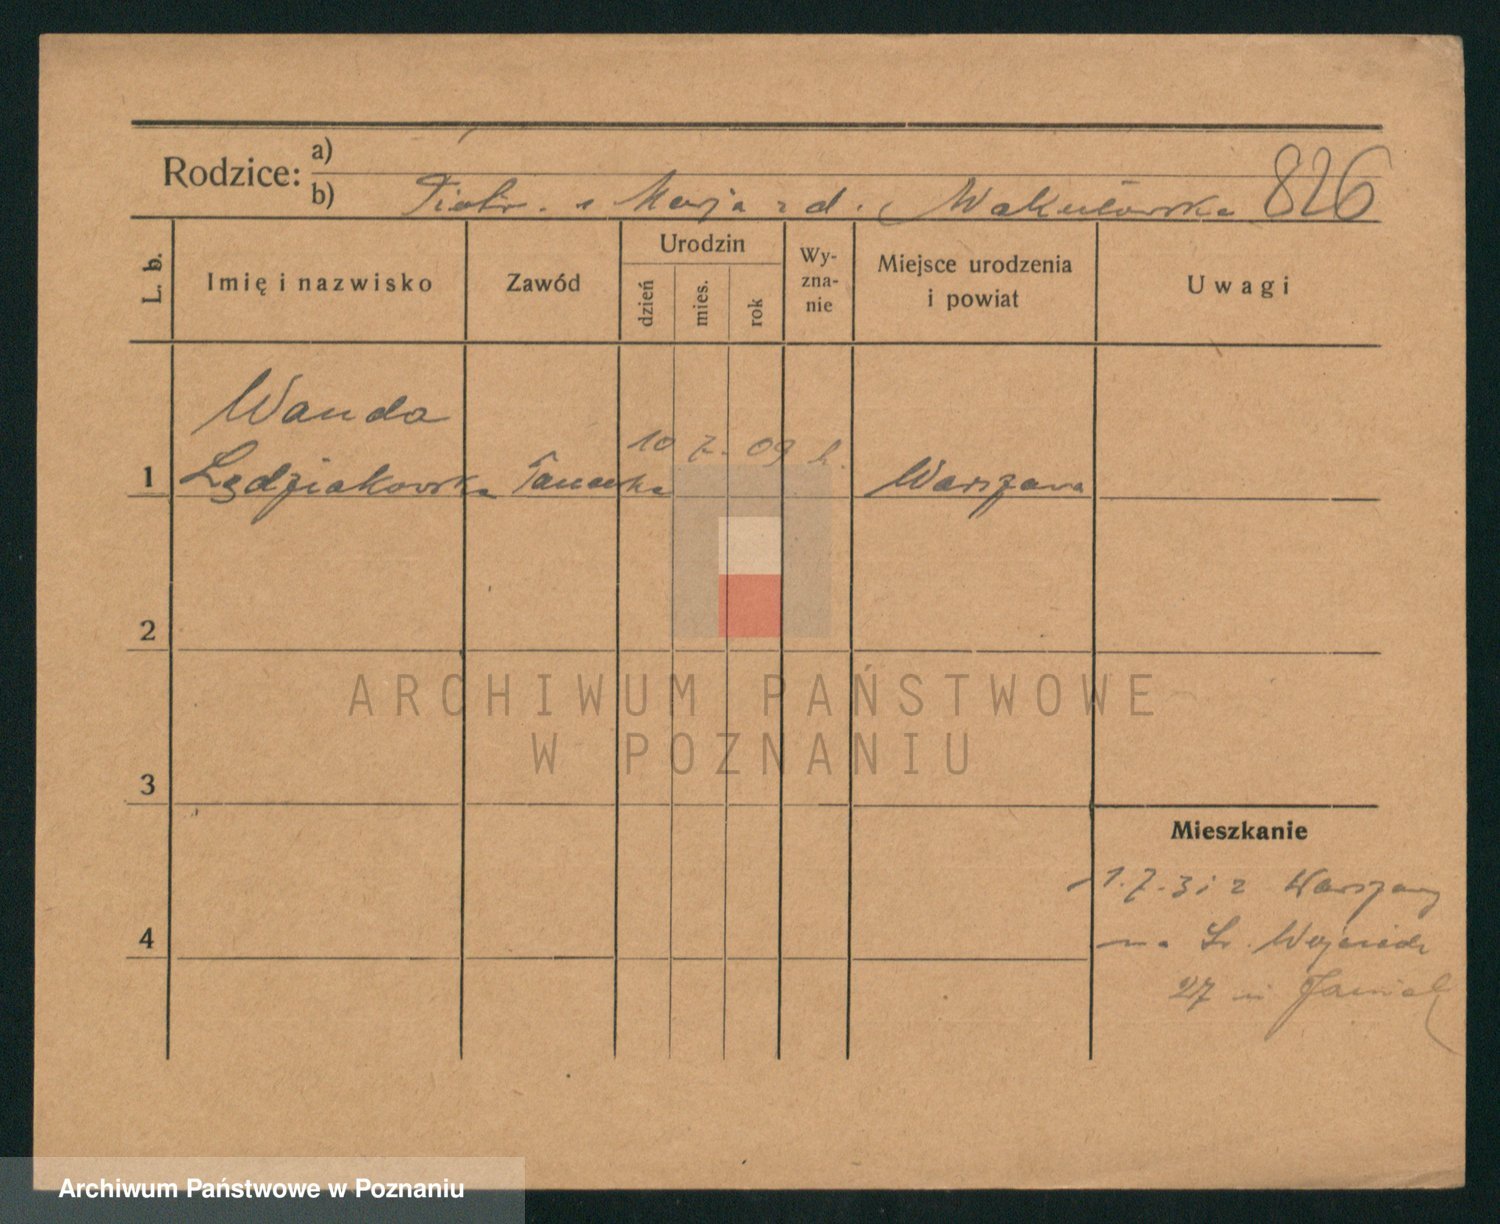 Rodzice: a)
b) Piotr i Marja z d. Wakulowska 826
L. b.
Imię i nazwisko
Zawód
Urodzin
dzień
mies.
rok
Wy-
zna-
nie
Miejsce urodzenia
i powiat
Uwagi
Wanda
1 Lędziakowska 10 7. 09 Warszawa
2
3
4
Mieszkanie
1.7.31 z Warszawy
na Św. Wojciech
27 m
ARCHIWUM PAŃSTWOWE
W POZNANIU
Archiwum Państwowe w Poznaniu